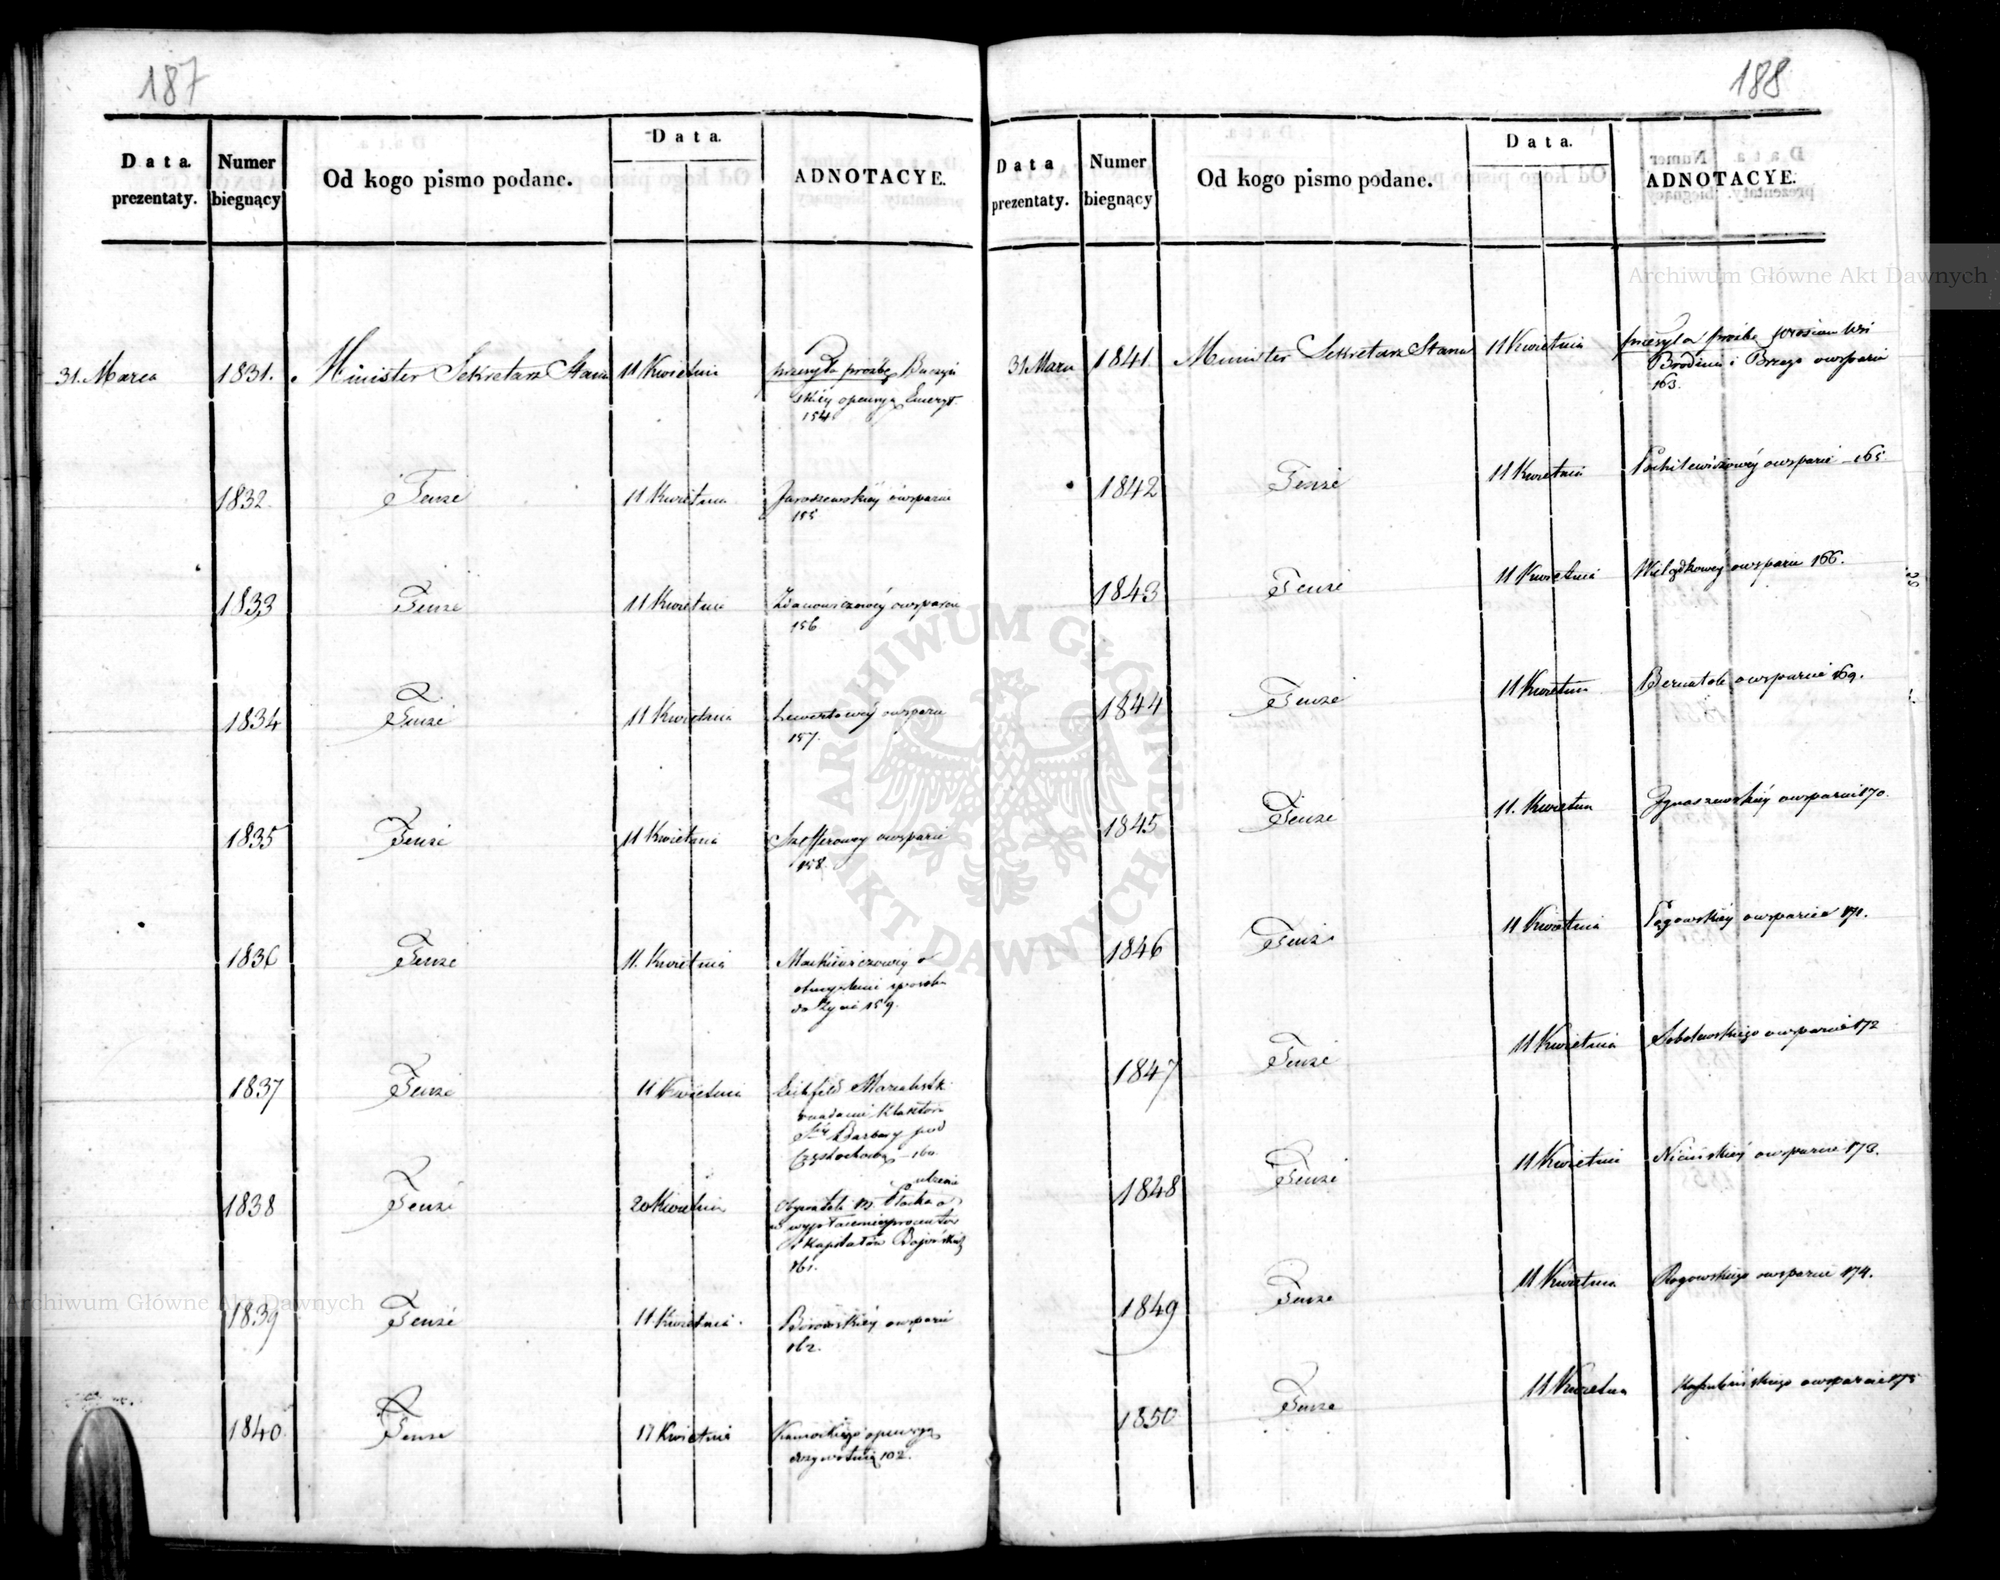 187
Data prezentaty.
Numer biegnący
Od kogo pismo podane.
Data.
ADNOTACYE.
31. Marca 1831. Minister Sekretarz Stanu 11 Kwietnia przesyła prośbę
o pensyą Emeryt.
154
1832. Tenże 11 Kwietnia owsparcie
155
1833 Tenże 11 Kwietnia Zdanowiczowéy owsparcie
156
1834 Tenże 11 Kwietnia owsparcie
157.
1835 Tenże 11 Kwietnia Szefferowey owsparcie
158.
1836 Tenże 11. Kwietnia o
obmyślenie sposobu
do życia 159.
1837 Tenże 11 Kwietnia
Stéy Barbary pod
Częstochową 160.
1838 Tenże 20 Kwietnia Obywateli M. Płocka o
wypłacenie procentów
od Kapitałów
161.
1839 Tenże 11 Kwietnia. owsparcie
162.
1840 Tenże 17 Kwietnia o pensyą
dożywotnią 102.
188
Data prezentaty.
Numer biegnący
Od kogo pismo podane.
Data.
ADNOTACYE.
31 Marca 1841. Minister Sekretarz Stanu 11 Kwietnia przesyła prośbę Włościan Wsi
i owsparcie
163.
1842 Tenże 11 Kwietnia owsparcie – 165
1843 Tenże 11 Kwietnia owsparcie 166.
1844 Tenże 11 Kwietnia owsparcie 169.
1845 Tenże 11. Kwietnia owsparcie 170.
1846 Tenże 11 Kwietnia owsparcie 171.
1847 Tenże 11 Kwietnia Sobolewskiego owsparcie 172
1848 Tenże 11 Kwietnia owsparcie 173.
1849 Tenże 11 Kwietnia Rogowskiego owsparcie 174.
1850 Tenże 11 Kwietnia owsparcie 175
Archiwum Główne Akt Dawnych
ARCHIWUM GŁÓWNE AKT DAWNYCH
Archiwum Główne Akt Dawnych